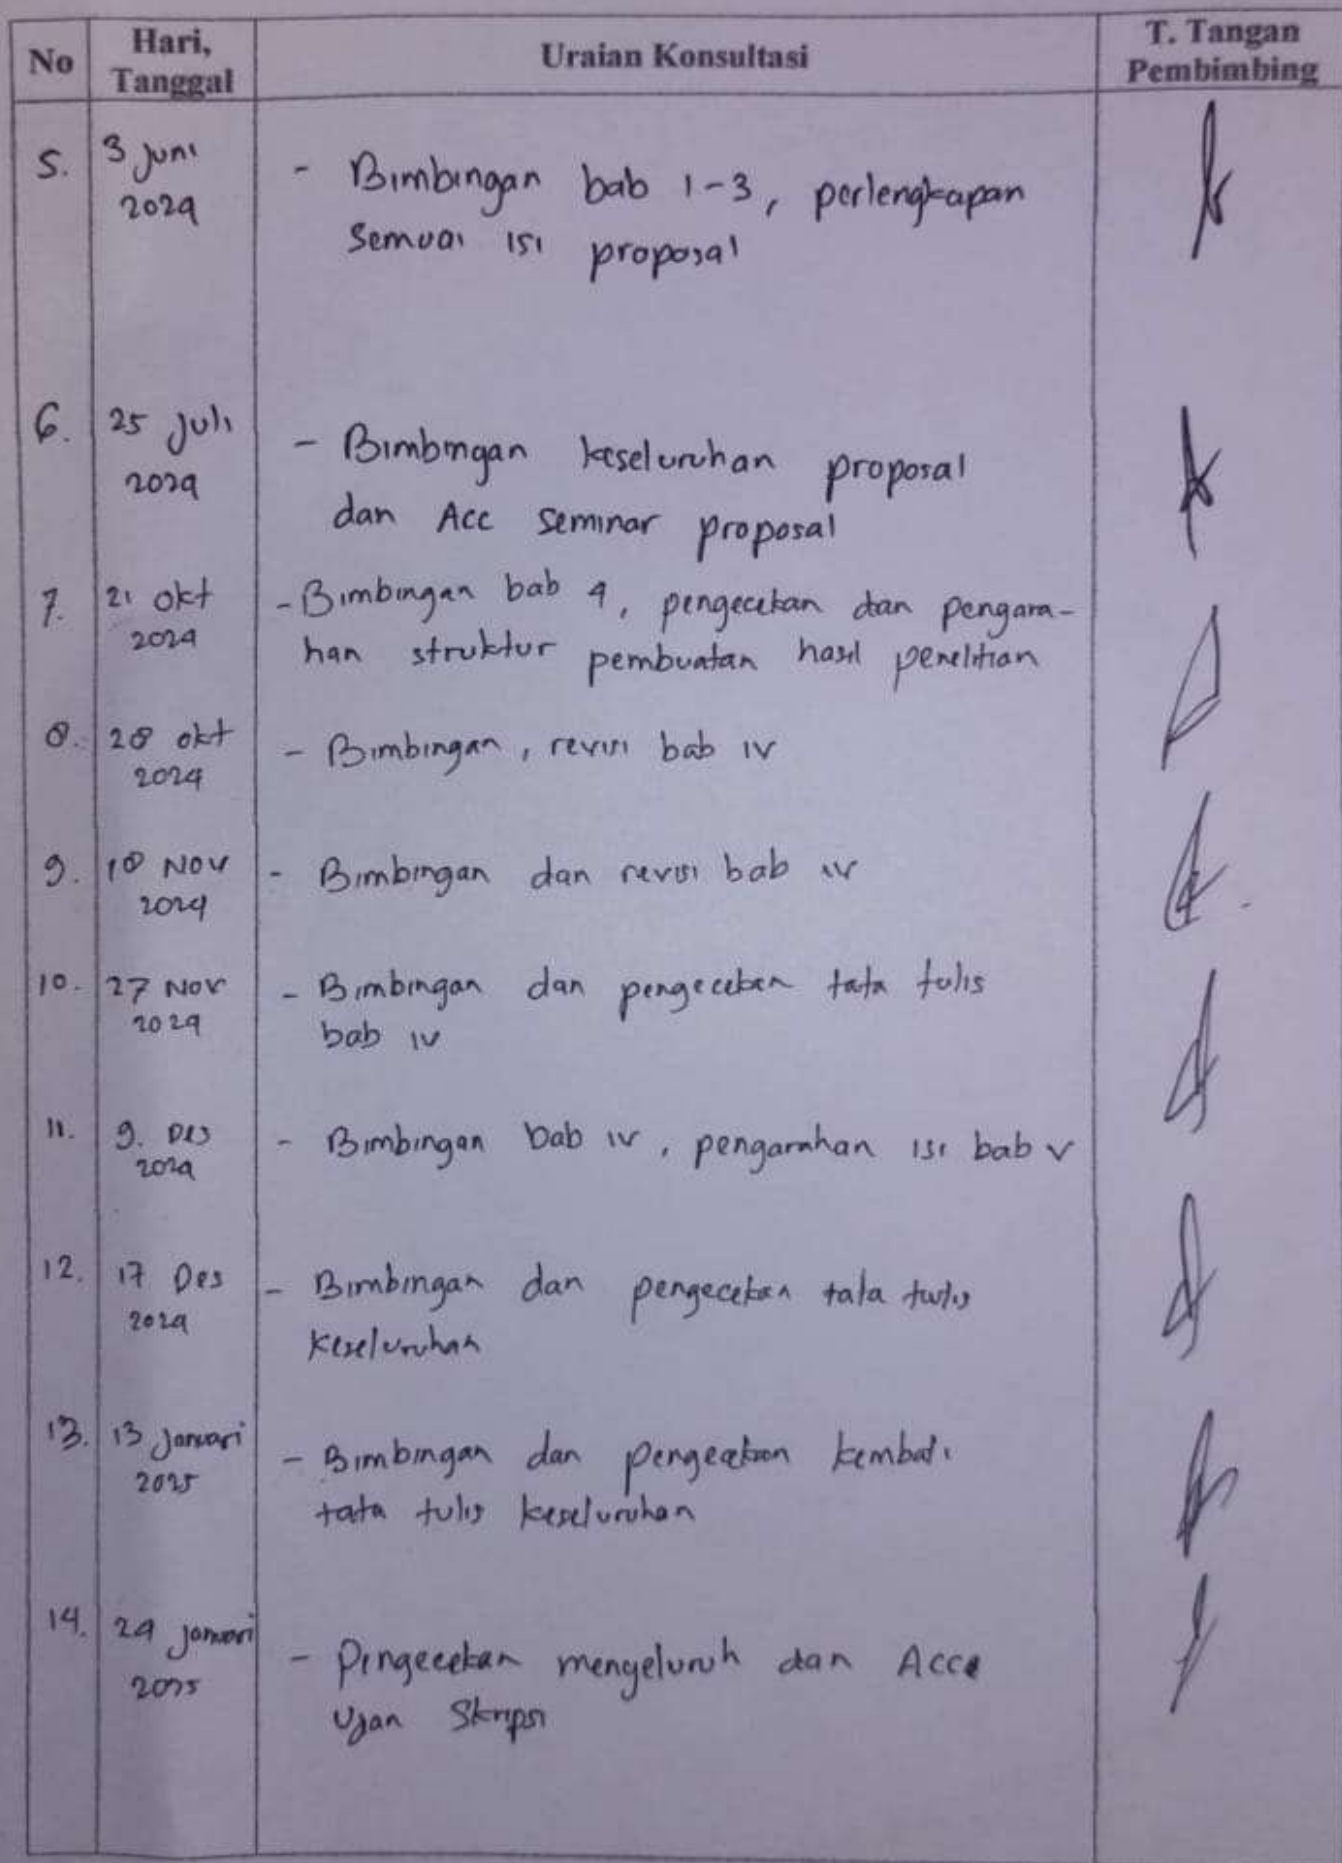 No
Hari,
Tanggal
Uraian Konsultasi
T. Tangan
Pembimbing
5.
3 Juni
2024
- Bimbingan bab 1-3, perlengkapan
semua isi proposal
6.
25 Juli
2024
- Bimbingan keseluruhan proposal
dan Acc seminar proposal
7.
21 okt
2024
- Bimbingan bab 4, pengecekan dan pengara-
han struktur pembuatan hasil penelitian
8.
28 okt
2024
- Bimbingan, revisi bab IV
9.
18 Nov
2024
- Bimbingan dan revisi bab IV
10.
27 Nov
2024
- Bimbingan dan pengecekan tata tulis
bab IV
11.
9. Des
2024
- Bimbingan bab IV, pengarahan isi bab V
12.
17 Des
2024
- Bimbingan dan pengecekan tata tulis
keseluruhan
13.
13 Januari
2025
- Bimbingan dan pengecekan kembali
tata tulis keseluruhan
14.
24 Januari
2025
- Pengecekan menyeluruh dan Acc
Ujian Skripsi